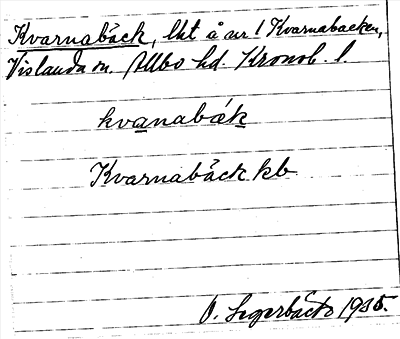 Kvarnabäck, lht å av 1 Kvarnabacken,
Vislanda sn. Allbo hd. Kronob. l.
kvanabäk
Kvarnabäck kb
O. Segerbäck 1935.